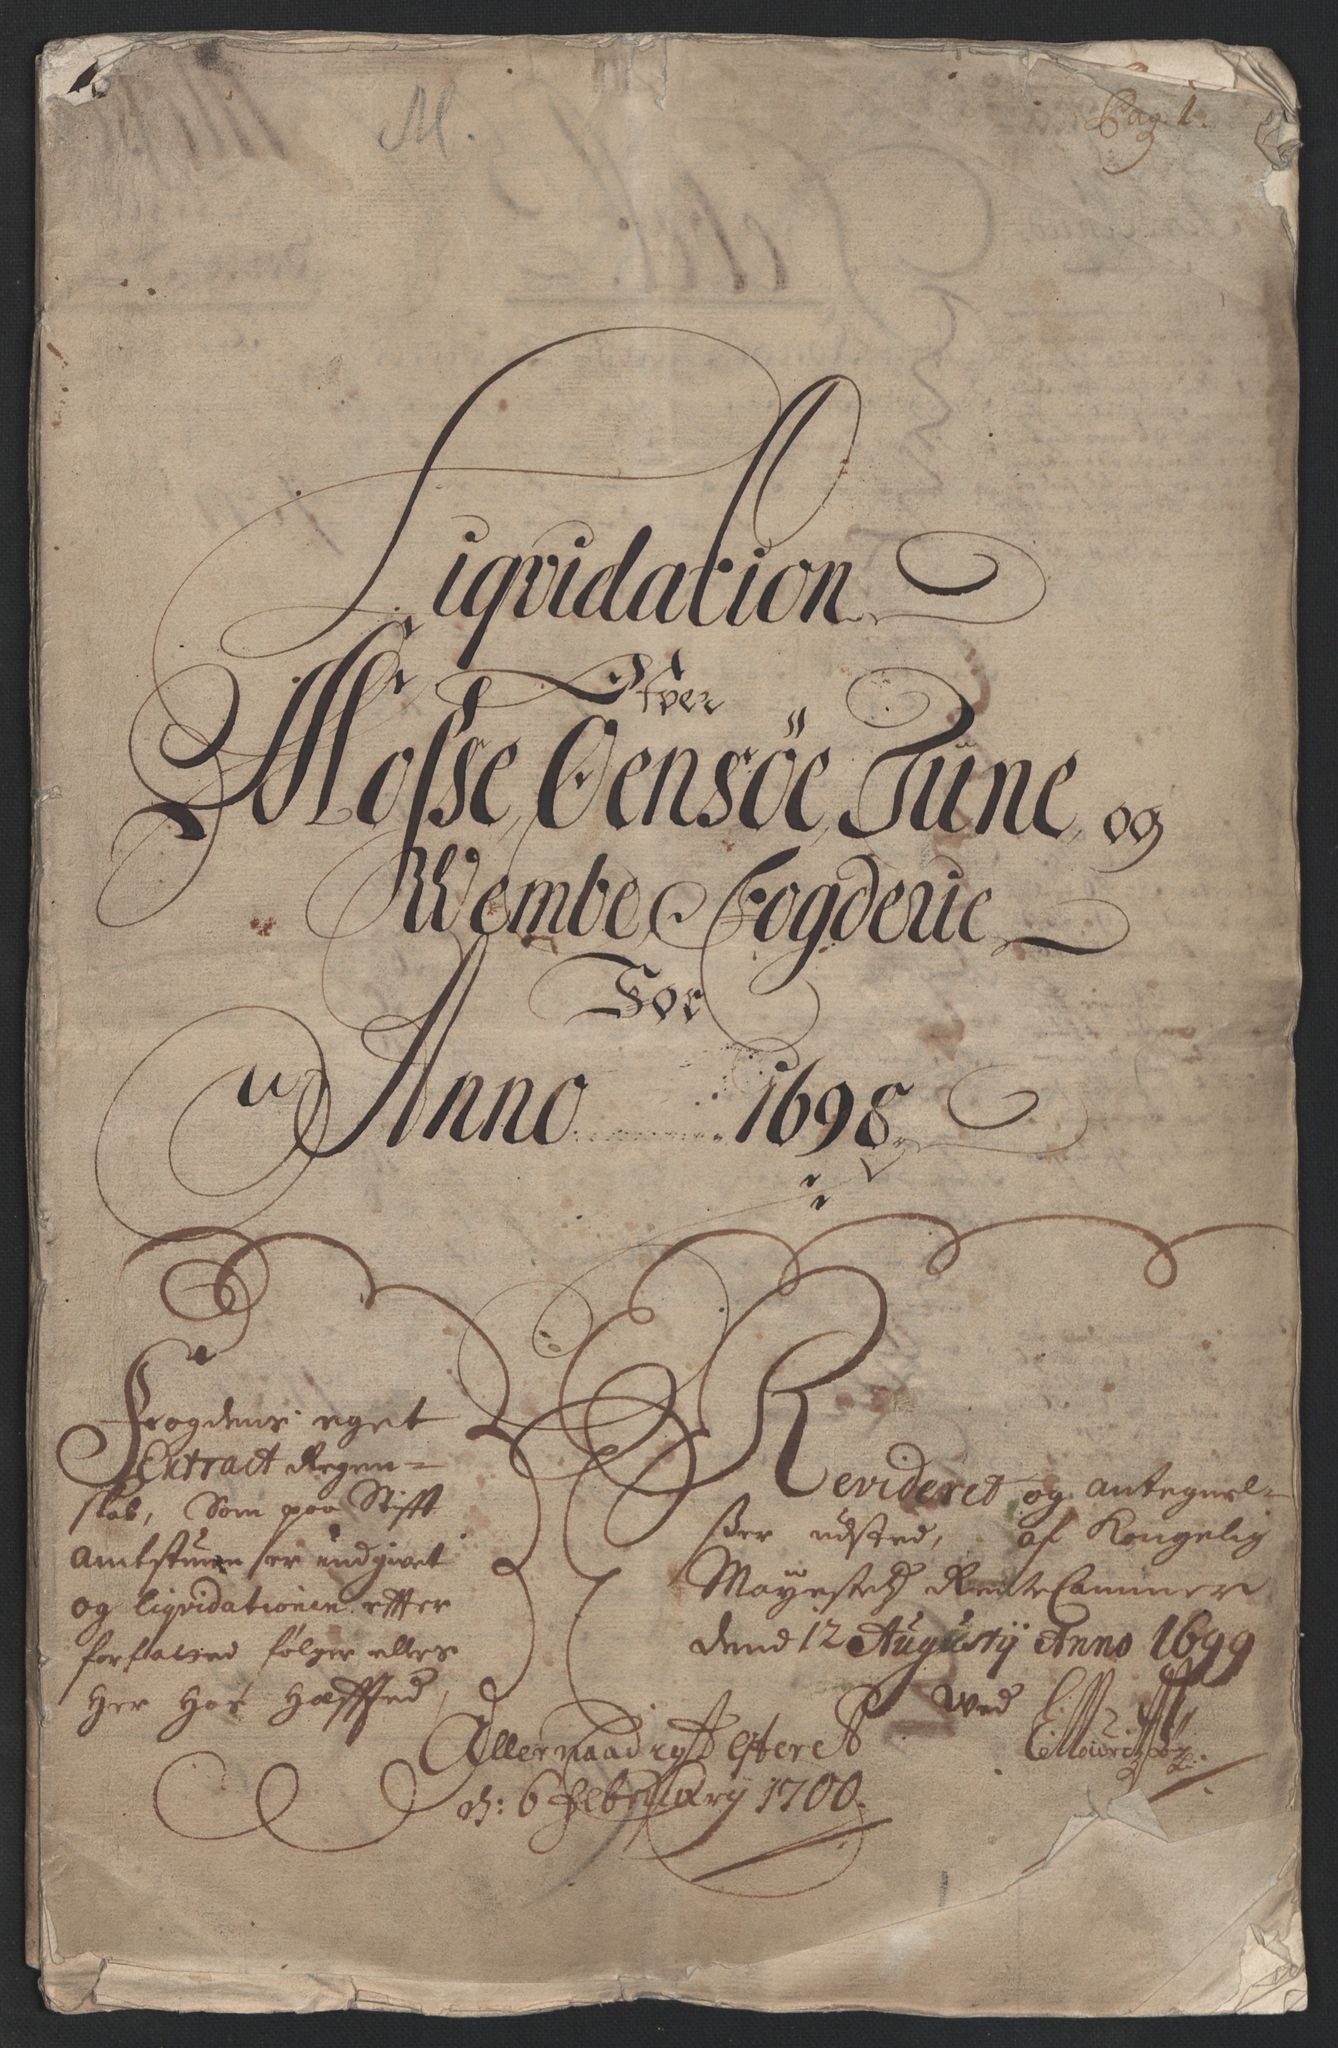 M.
Pag 1.
Liqvidation
Ofver
Mosse, Oensöe, Tüne, og
Wembe Fogderie
For
Anno 1698
Frogdens eget
Extract Regen-
skab, Som paa Stifft
amtstuen er indgivet
og liqvidationen effter
forfatted følger ellers
Her Hos Hæffted,
Revideret og antegnel-
ßer udsted, af Kongelig
Mayestetz RenteCammer
dend 12 Augustij Anno 1699
Ved
Allernaadigst qvitteret
d: 6 Februarij 1700.